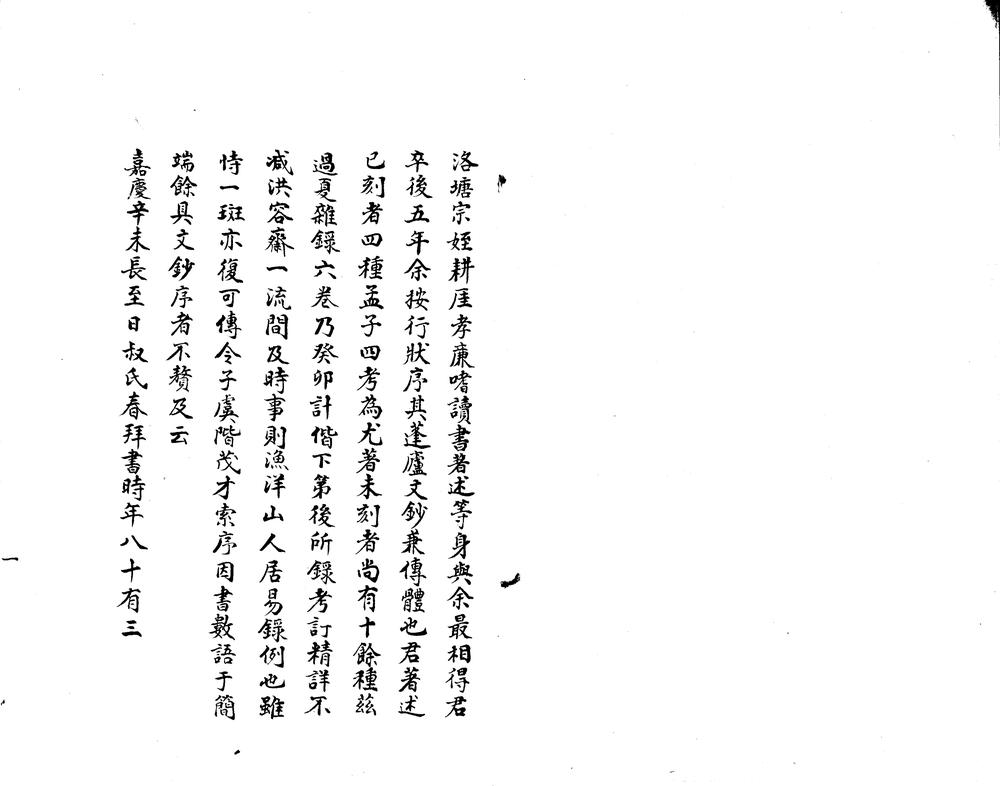 洛塘宗姪耕厓孝廉嗜讀書著述等身與余最相得君
卒後五年余按行狀序其蓬廬文鈔兼傳體也君著述
已刻者四種孟子四考為尤著未刻者尚有十餘種茲
過夏雜錄六卷乃癸卯計偕下第後所錄考訂精詳不
減洪容齋一流間及時事則漁洋山人居易錄例也雖
特一斑亦復可傳令子虞階茂才索序因書數語于簡
端餘具文鈔序者不贅及云
嘉慶辛未長至日叔氏春拜書時年八十有三
一